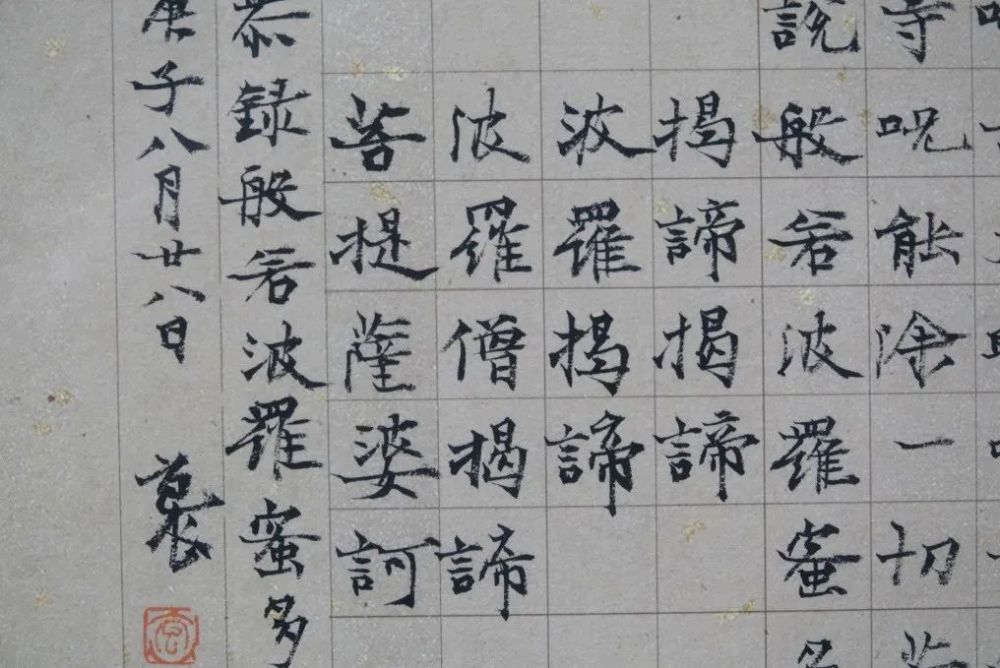 等呪能除一切苦
說般若波羅蜜多
揭諦揭諦
波羅揭諦
波羅僧揭諦
菩提薩婆訶
恭録般若波羅蜜多
庚子八月廿八日